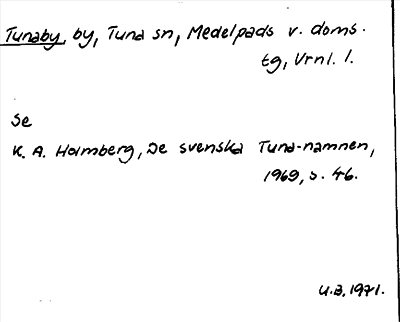 Tunaby, by, Tuna sn, Medelpads v. doms.
tg, Vrnl. l.
Se
K. A. Holmberg, De svenska Tuna-namnen,
1969, s. 46.
U.B. 1971.